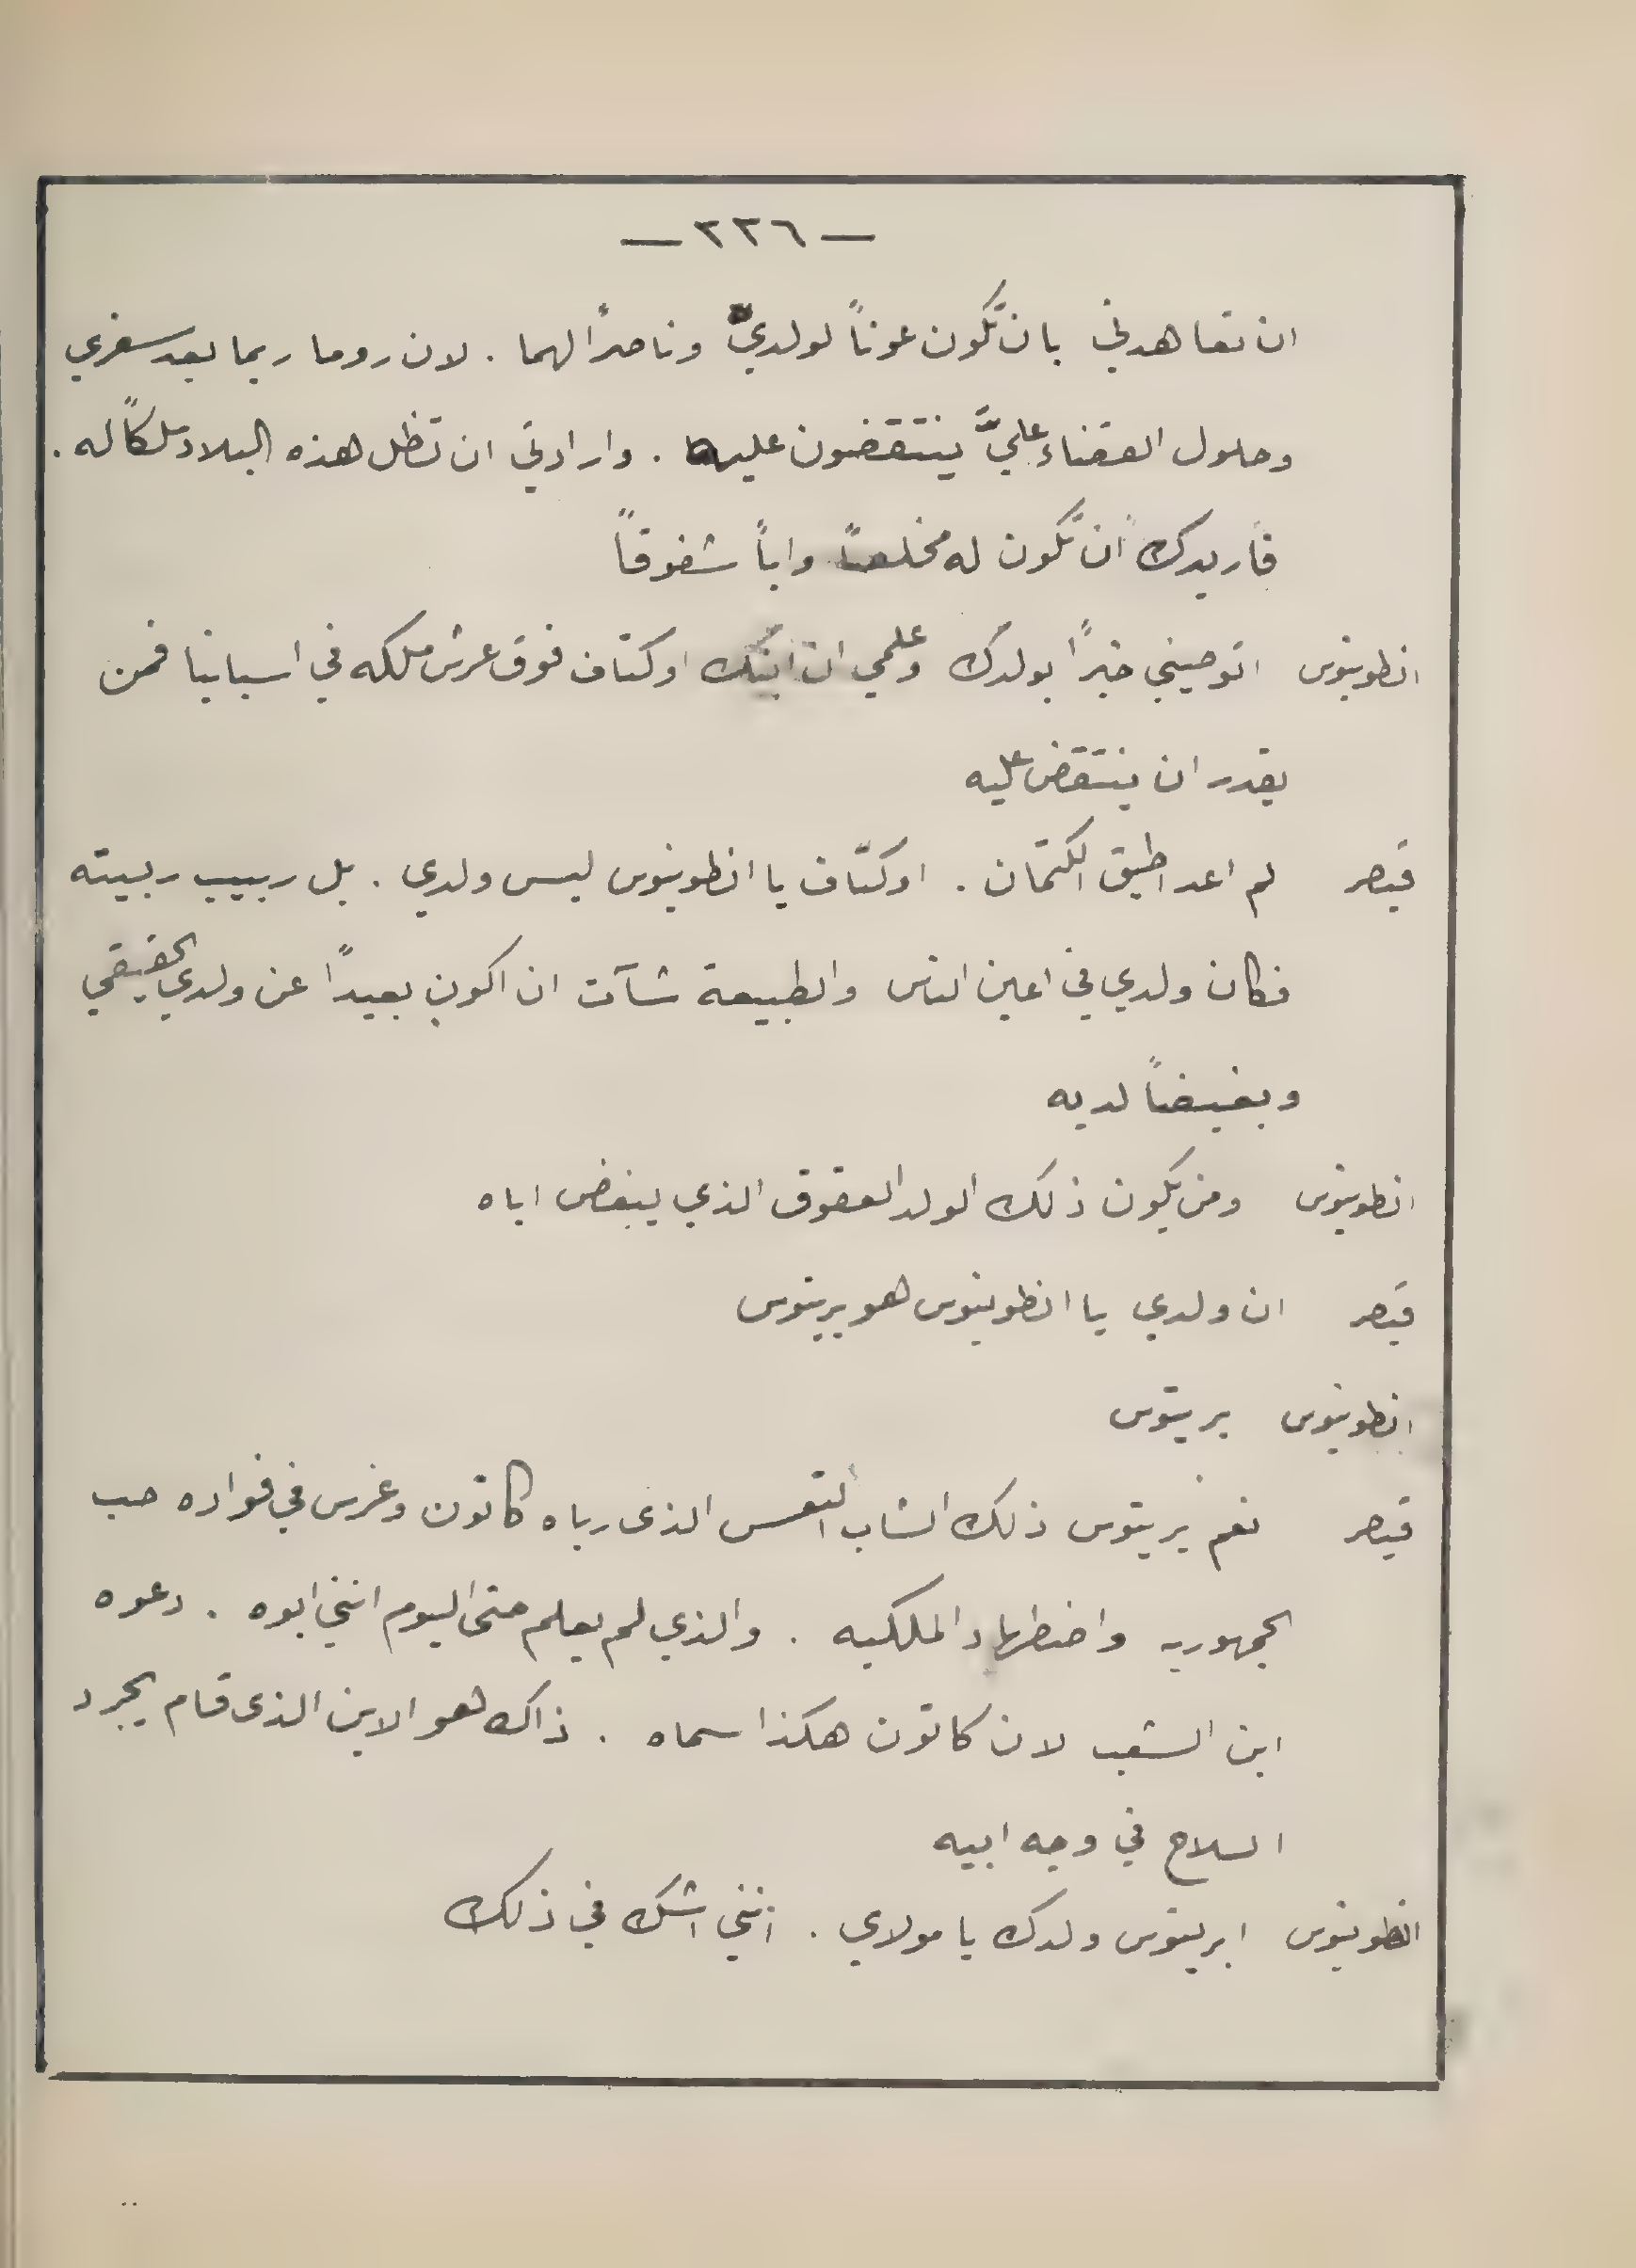 — ٢٢٦ —
ان تعاهدني بان تكون عوناً لولديّ وناصراً لهما . لان روما ربما بعد سفري
وحلول القضاء عليّ ينتقضون عليه . وارادتي ان تظل هذه البلاد ملكاً له .
فأريدك ان تكون له مخلصاً واباً شفوقاً
انطونيوس اتوصيني خيراً بولدك وعلمي ان ابنك اوكتاف فوق عرش ملكه في اسبانيا فمن
يقدر ان ينتقض عليه
قيصر لم اعد اطيق الكتمان . اوكتاف يا انطونيوس ليس ولدي . بل ربيب ربيته
فكان ولدي في اعين الناس والطبيعة شآت ان اكون بعيداً عن ولدي الحقيقي
وبغيضاً لديه
انطونيوس ومن يكون ذلك الولد العقوق الذي يبغض اباه
قيصر ان ولدي يا انطونيوس هو بريتوس
انطونيوس بريتوس
قيصر نعم بريتوس ذلك الشاب التعس الذى رباه كاتون وغرس في فواده حب
الجمهوريه واضطهاد الملكيه . والذي لم يعلم حتى اليوم انني ابوه . دعوه
ابن الشعب لان كاتون هكذا سماه . ذاك هو الابن الذى قام يجرد
السلاح في وجه ابيه
انطونيوس ابريتوس ولدك يا مولاي . انني اشك في ذلك